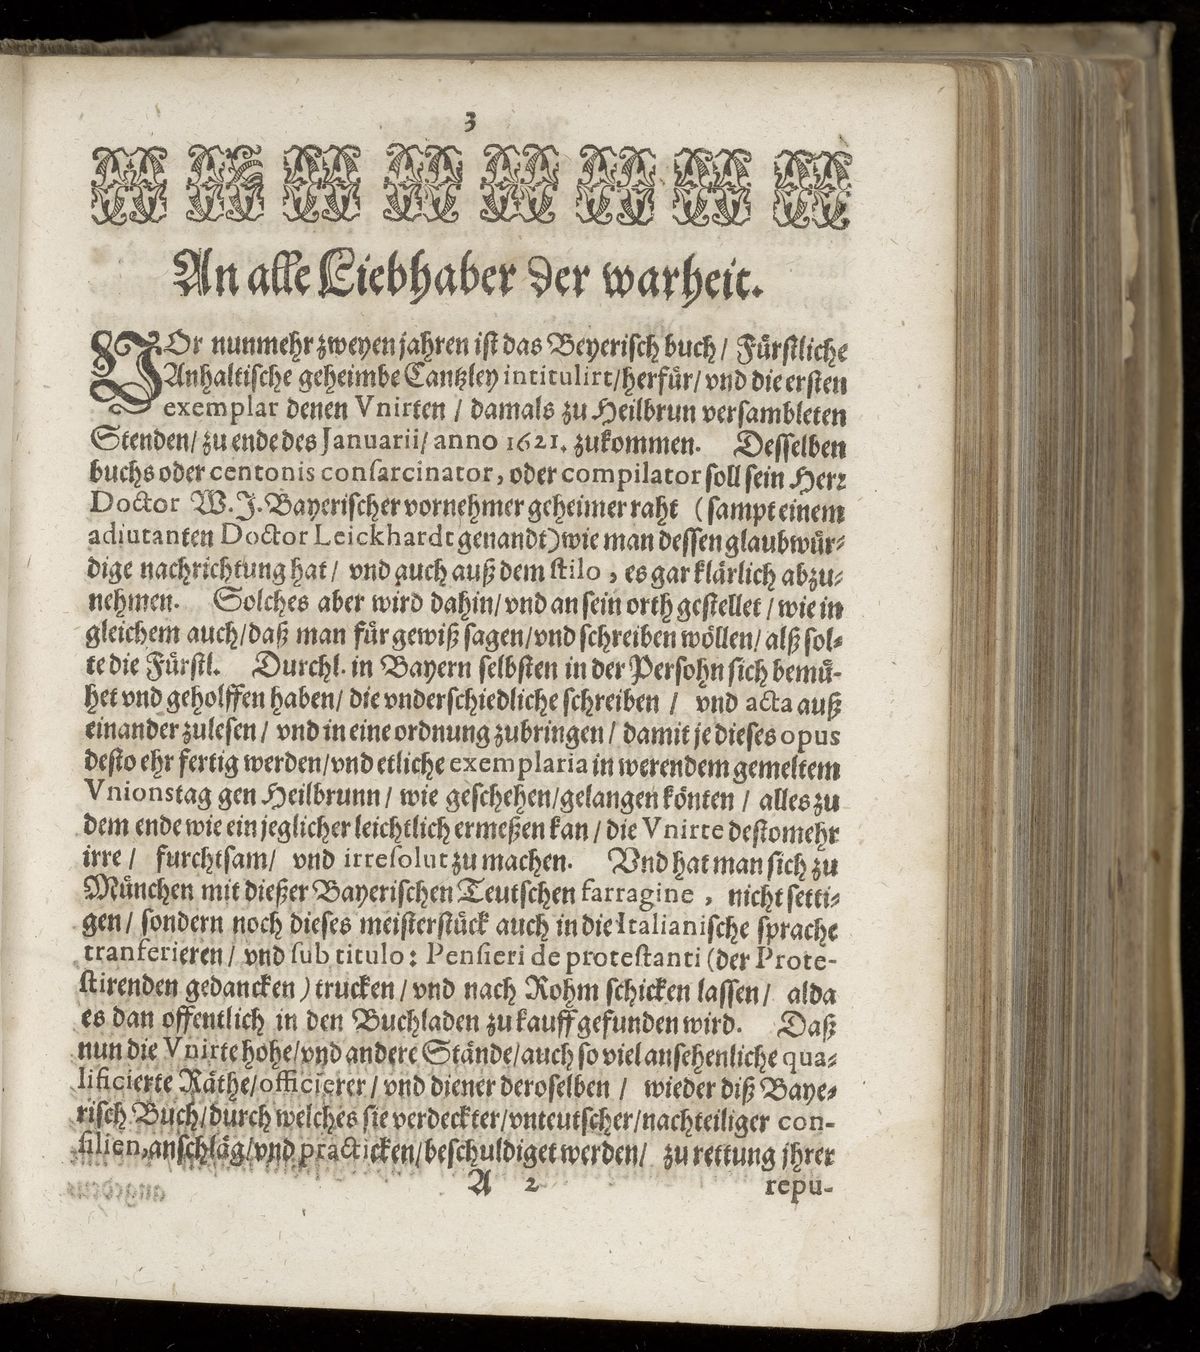 3
An alle Liebhaber der warheit.
VOr nunmehr zweyen jahren ist das Beyerisch buch / Fürstliche
Anhaltische geheimbe Cantzley intitulirt/herfür/ vnd die ersten
exemplar denen Vnirten / damals zu Heilbrun versambleten
Stenden/ zu ende des Januarii/ anno 1621. zukommen. Desselben
buchs oder centonis consarcinator, oder compilator soll sein Herr
Doctor W. J. Bayerischer vornehmer geheimer raht (sampt einem
adiutanten Doctor Leickhardt genandt) wie man dessen glaubwür-
dige nachrichtung hat / vnd auch auß dem stilo, es gar klärlich abzu-
nehmen. Solches aber wird dahin/ vnd an sein orth gestellet / wie in
gleichem auch/daß man für gewiß sagen/vnd schreiben wöllen/ alß sol-
te die Fürstl. Durchl. in Bayern selbsten in der Persohn sich bemü-
het vnd geholffen haben/ die vnderschiedliche schreiben / vnd acta auß
einander zulesen / vnd in eine ordnung zubringen / damit je dieses opus
desto ehr fertig werden/vnd etliche exemplaria in werendem gemeltem
Vnionstag gen Heilbrunn / wie geschehen/gelangen könten / alles zu
dem ende wie ein jeglicher leichtlich ermeßen kan / die Vnirte destomehr
irre / furchtsam/ vnd irresolut zu machen. Vnd hat man sich zu
München mit dießer Bayerischen Teutschen farragine, nicht setti-
gen / sondern noch dieses meisterstück auch in die Italianische sprache
tranferieren / vnd sub titulo: Pensieri de protestanti (der Prote-
stirenden gedancken) trucken / vnd nach Rohm schicken lassen / alda
es dan offentlich in den Buchladen zu kauff gefunden wird. Daß
nun die Vnirte hohe/vnd andere Stände/auch so viel ansehenliche qua-
lificierte Räthe/officierer / vnd diener deroselben / wieder diß Baye-
risch Buch/durch welches sie verdeckter/vnteutscher/nachteiliger con-
silien,anschläg/vnd practicken/beschuldiget werden/ zu rettung jhrer
A 2 repu-